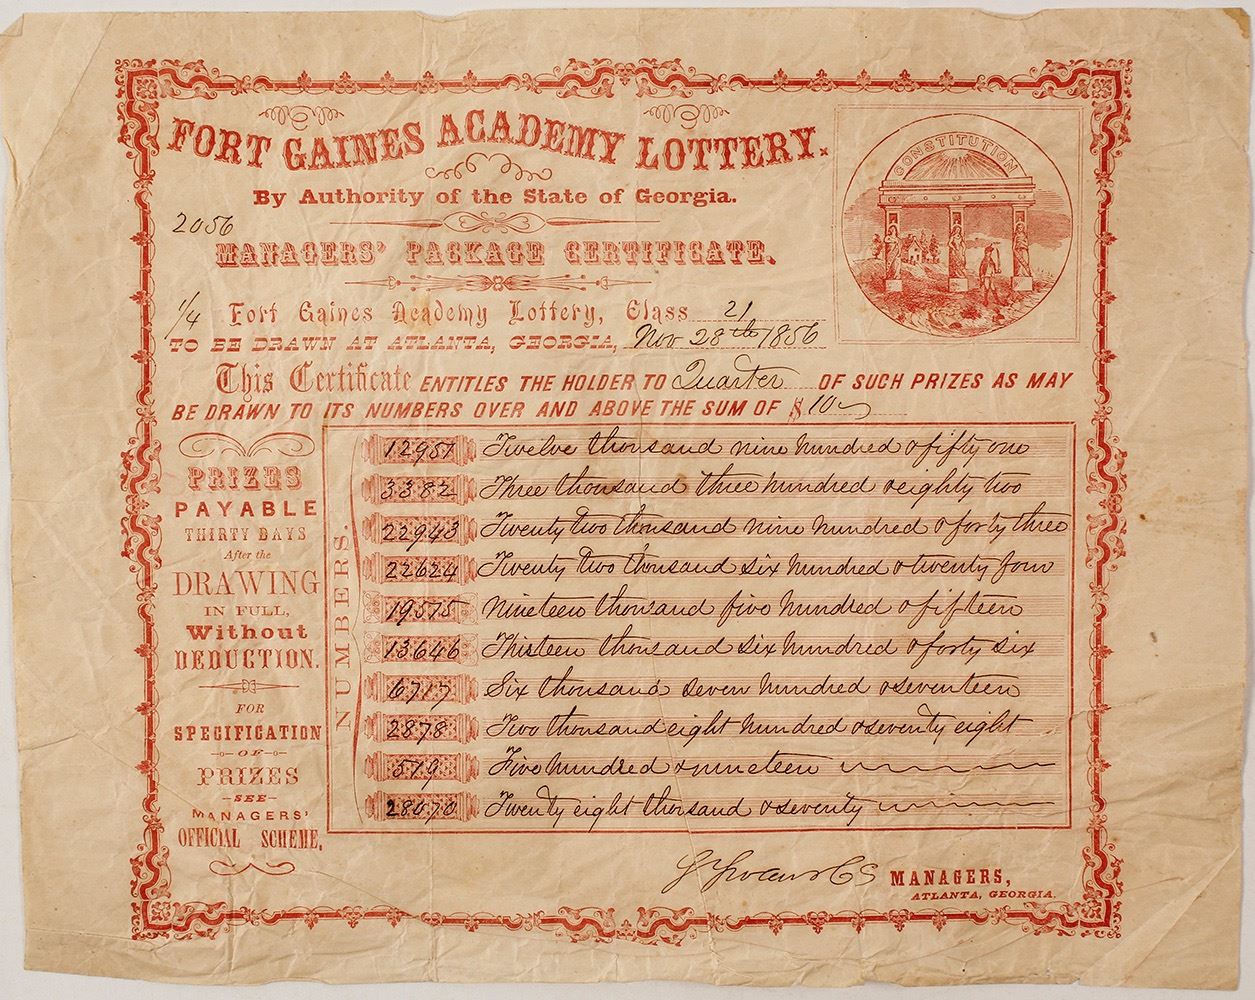 FORT GAINES ACADEMY LOTTERY.
By Authority of the State of Georgia.
2056
MANAGERS' PACKAGE CERTIFICATE.
CONSTITUTION
1/4 Fort Gaines Academy Lottery, Class 21
TO BE DRAWN AT ATLANTA, GEORGIA, Nov 28th 1856
This Certificate ENTITLES THE HOLDER TO Quarter OF SUCH PRIZES AS MAY
BE DRAWN TO ITS NUMBERS OVER AND ABOVE THE SUM OF $10
PRIZES
PAYABLE
THIRTY DAYS
After the
DRAWING
IN FULL,
Without
DEDUCTION.
FOR
SPECIFICATION
OF
PRIZES
SEE
MANAGERS'
OFFICIAL SCHEME,
NUMBERS.
12951 Twelve thousand nine hundred & fifty one
3382 Three thousand three hundred & eighty two
22943 Twenty two thousand nine hundred & forty three
22624 Twenty two thousand six hundred & twenty four
19515 Nineteen thousand five hundred & fifteen
13646 Thirteen thousand six hundred & forty six
6717 Six thousand seven hundred & seventeen
2878 Two thousand eight hundred & seventy eight
519 Five hundred & nineteen
28070 Twenty eight thousand & seventy
MANAGERS,
ATLANTA, GEORGIA.